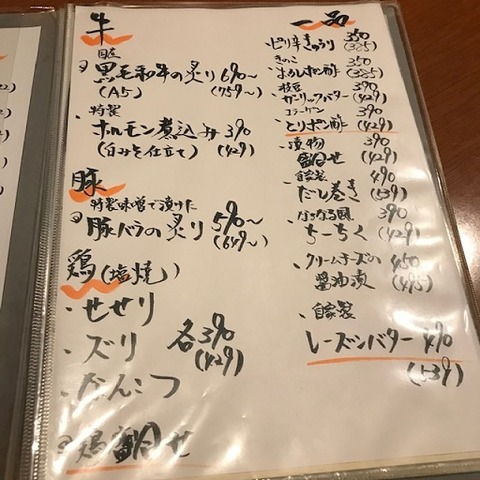 牛
国産
黒毛和牛の炙り 690〜
(A5) (759〜)
特製
ホルモン煮込み 390
(白みそ仕立て) (429)
豚
特製味噌で漬けた
豚バラの炙り 590〜
(649〜)
鶏(塩焼)
・せせり
・ズリ 各390
(429)
・なんこつ
鶏盛合せ
一品
・ピリ辛きゅうり 350
(385)
きのこ
おろしポン酢 350
(385)
枝豆
ガーリックバター 390
(429)
コラーゲン
とりポン酢 390
(429)
漬物
盛合せ 390
(429)
自家製
だし巻き 490
(539)
390
ちーちく (429)
クリームチーズの 450
醤油漬 (495)
自家製
レーズンバター 490
(539)